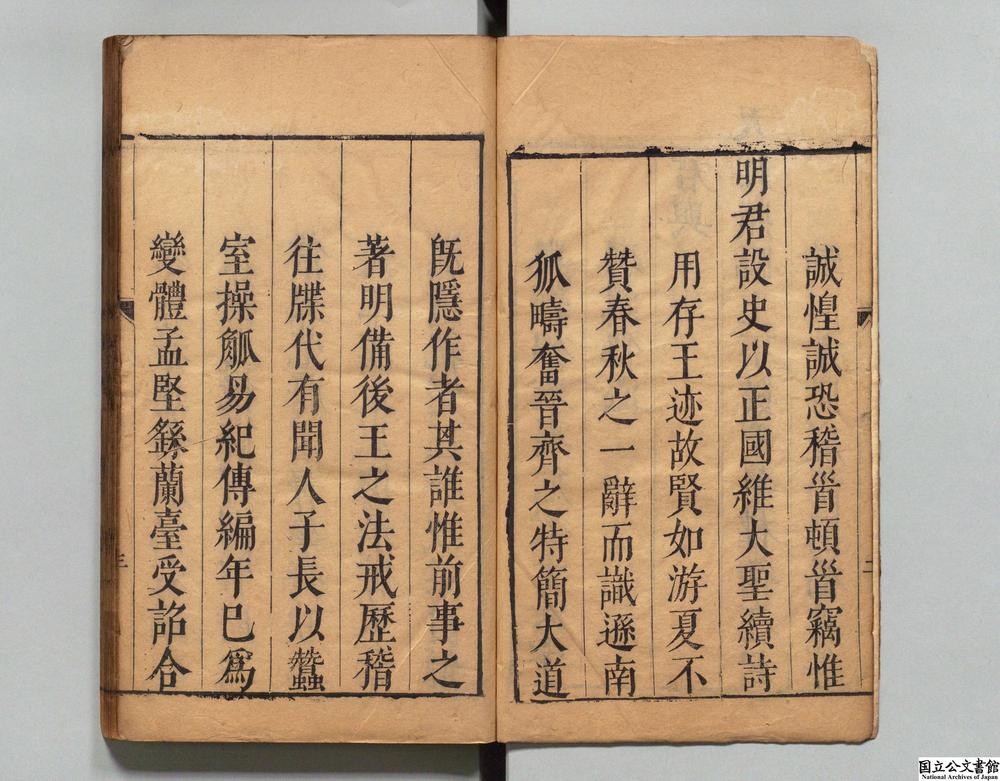 誠惶誠恐稽首頓首竊惟
明君設史以正國維大聖續詩
用存王迹故賢如游夏不
贊春秋之一辭而識遜南
狐疇奮晉齊之特簡大道
旣隱作者其誰惟前事之
著明備後王之法戒歷稽
往牒代有聞人子長以蠶
室操觚易紀傳編年巳爲
變體孟堅繇蘭臺受詔合
二
三
国立公文書館
National Archives of Japan